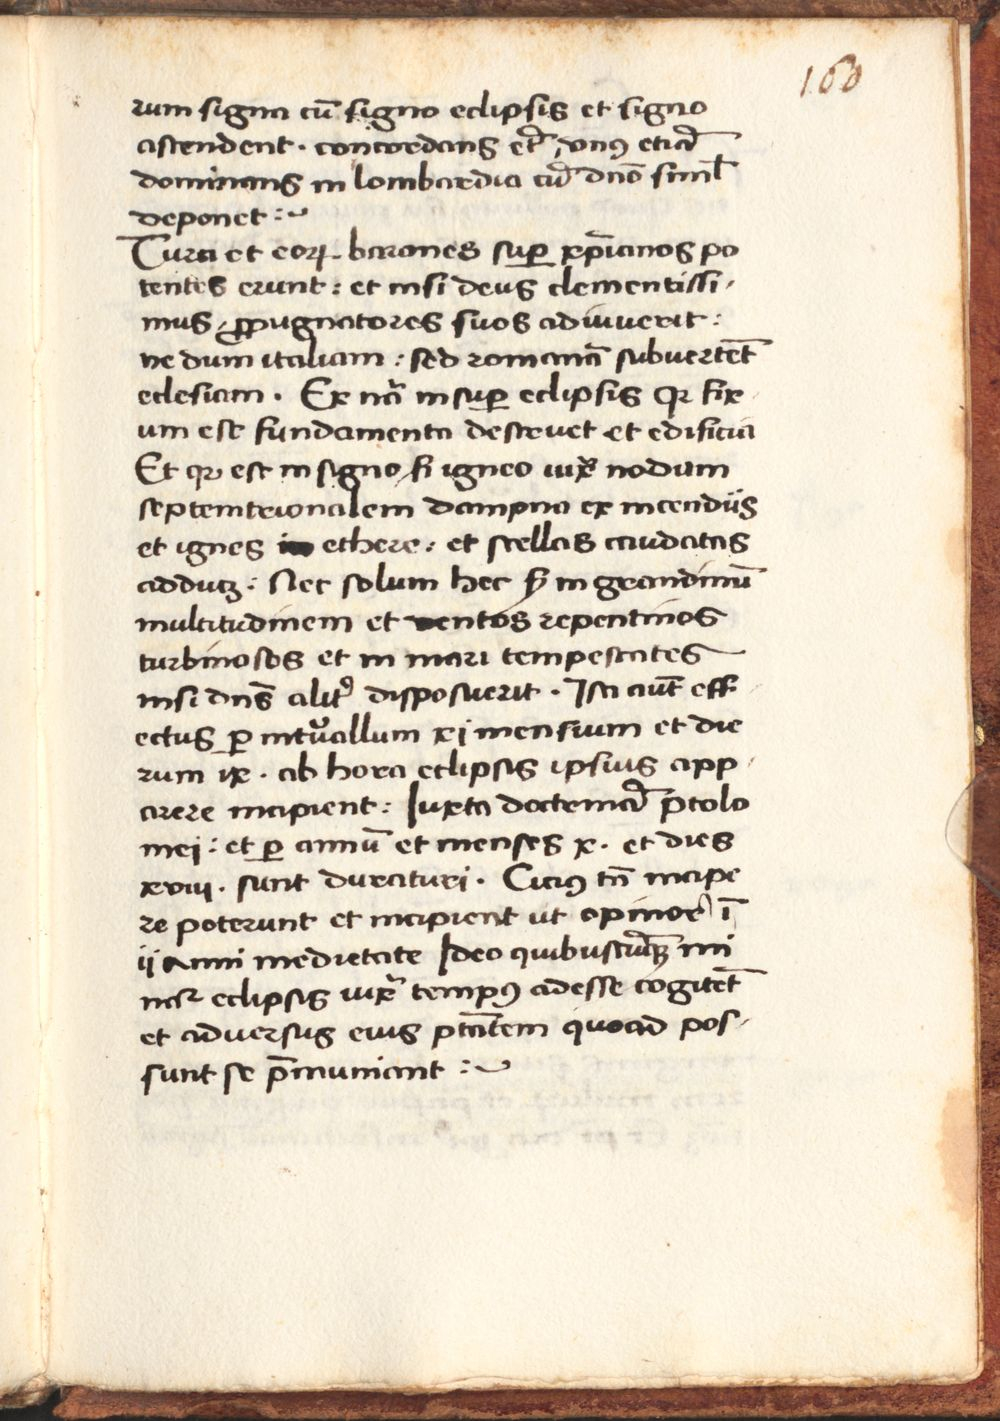 160
rum signa cū signo eclipsis et signo
astendent. concordans et͛ , vnꝯ etiā
dominans in lombardia cū dn̄o simil̄
deponet :~
Turci et eoꝝ barones suꝑ xp̄ianos po
tentes erunt : et nisi deus clementissi-
mus, ꝓpugnatores suos adiuuerit :
ne dum italiam : sed romanā subuertēt
eclesiam . Ex nr̄a insuꝑ eclipsis qꝛ fix-
um est fundamenta destruet et edificia
Et qꝛ est in signo igneo iuxͣ nodum
septemtrionalem dampna ex incendiis
et ignes in ethere : et stellas caudatas
adducꝫ . Nec solum hec sꝫ in grandinū
multitudinem et ventos repentinos
turbinosos et in mari tempestates
nisi dn̄s alit͛ disposuerit . Isti aūt eff-
ectus ꝑ int͛uallum xi mensium et die
rum ix . ab hora eclipsis ipsius app-
arere incipient : Iuxta doctrinā ptolo
mei : et ꝑ annū et menses x . et dies
xviii . sunt duraturi . Citiꝯ tn̄ incipe
re poterunt et incipient ut opinor ī
ii anni medietate Ideo quibuscūqꝫ mi
nat͛ eclipsis iuxͣ tempꝯ adesse cogitēt
et aduersus eius ptātem quoad pos-
sunt se p̄muniant :~